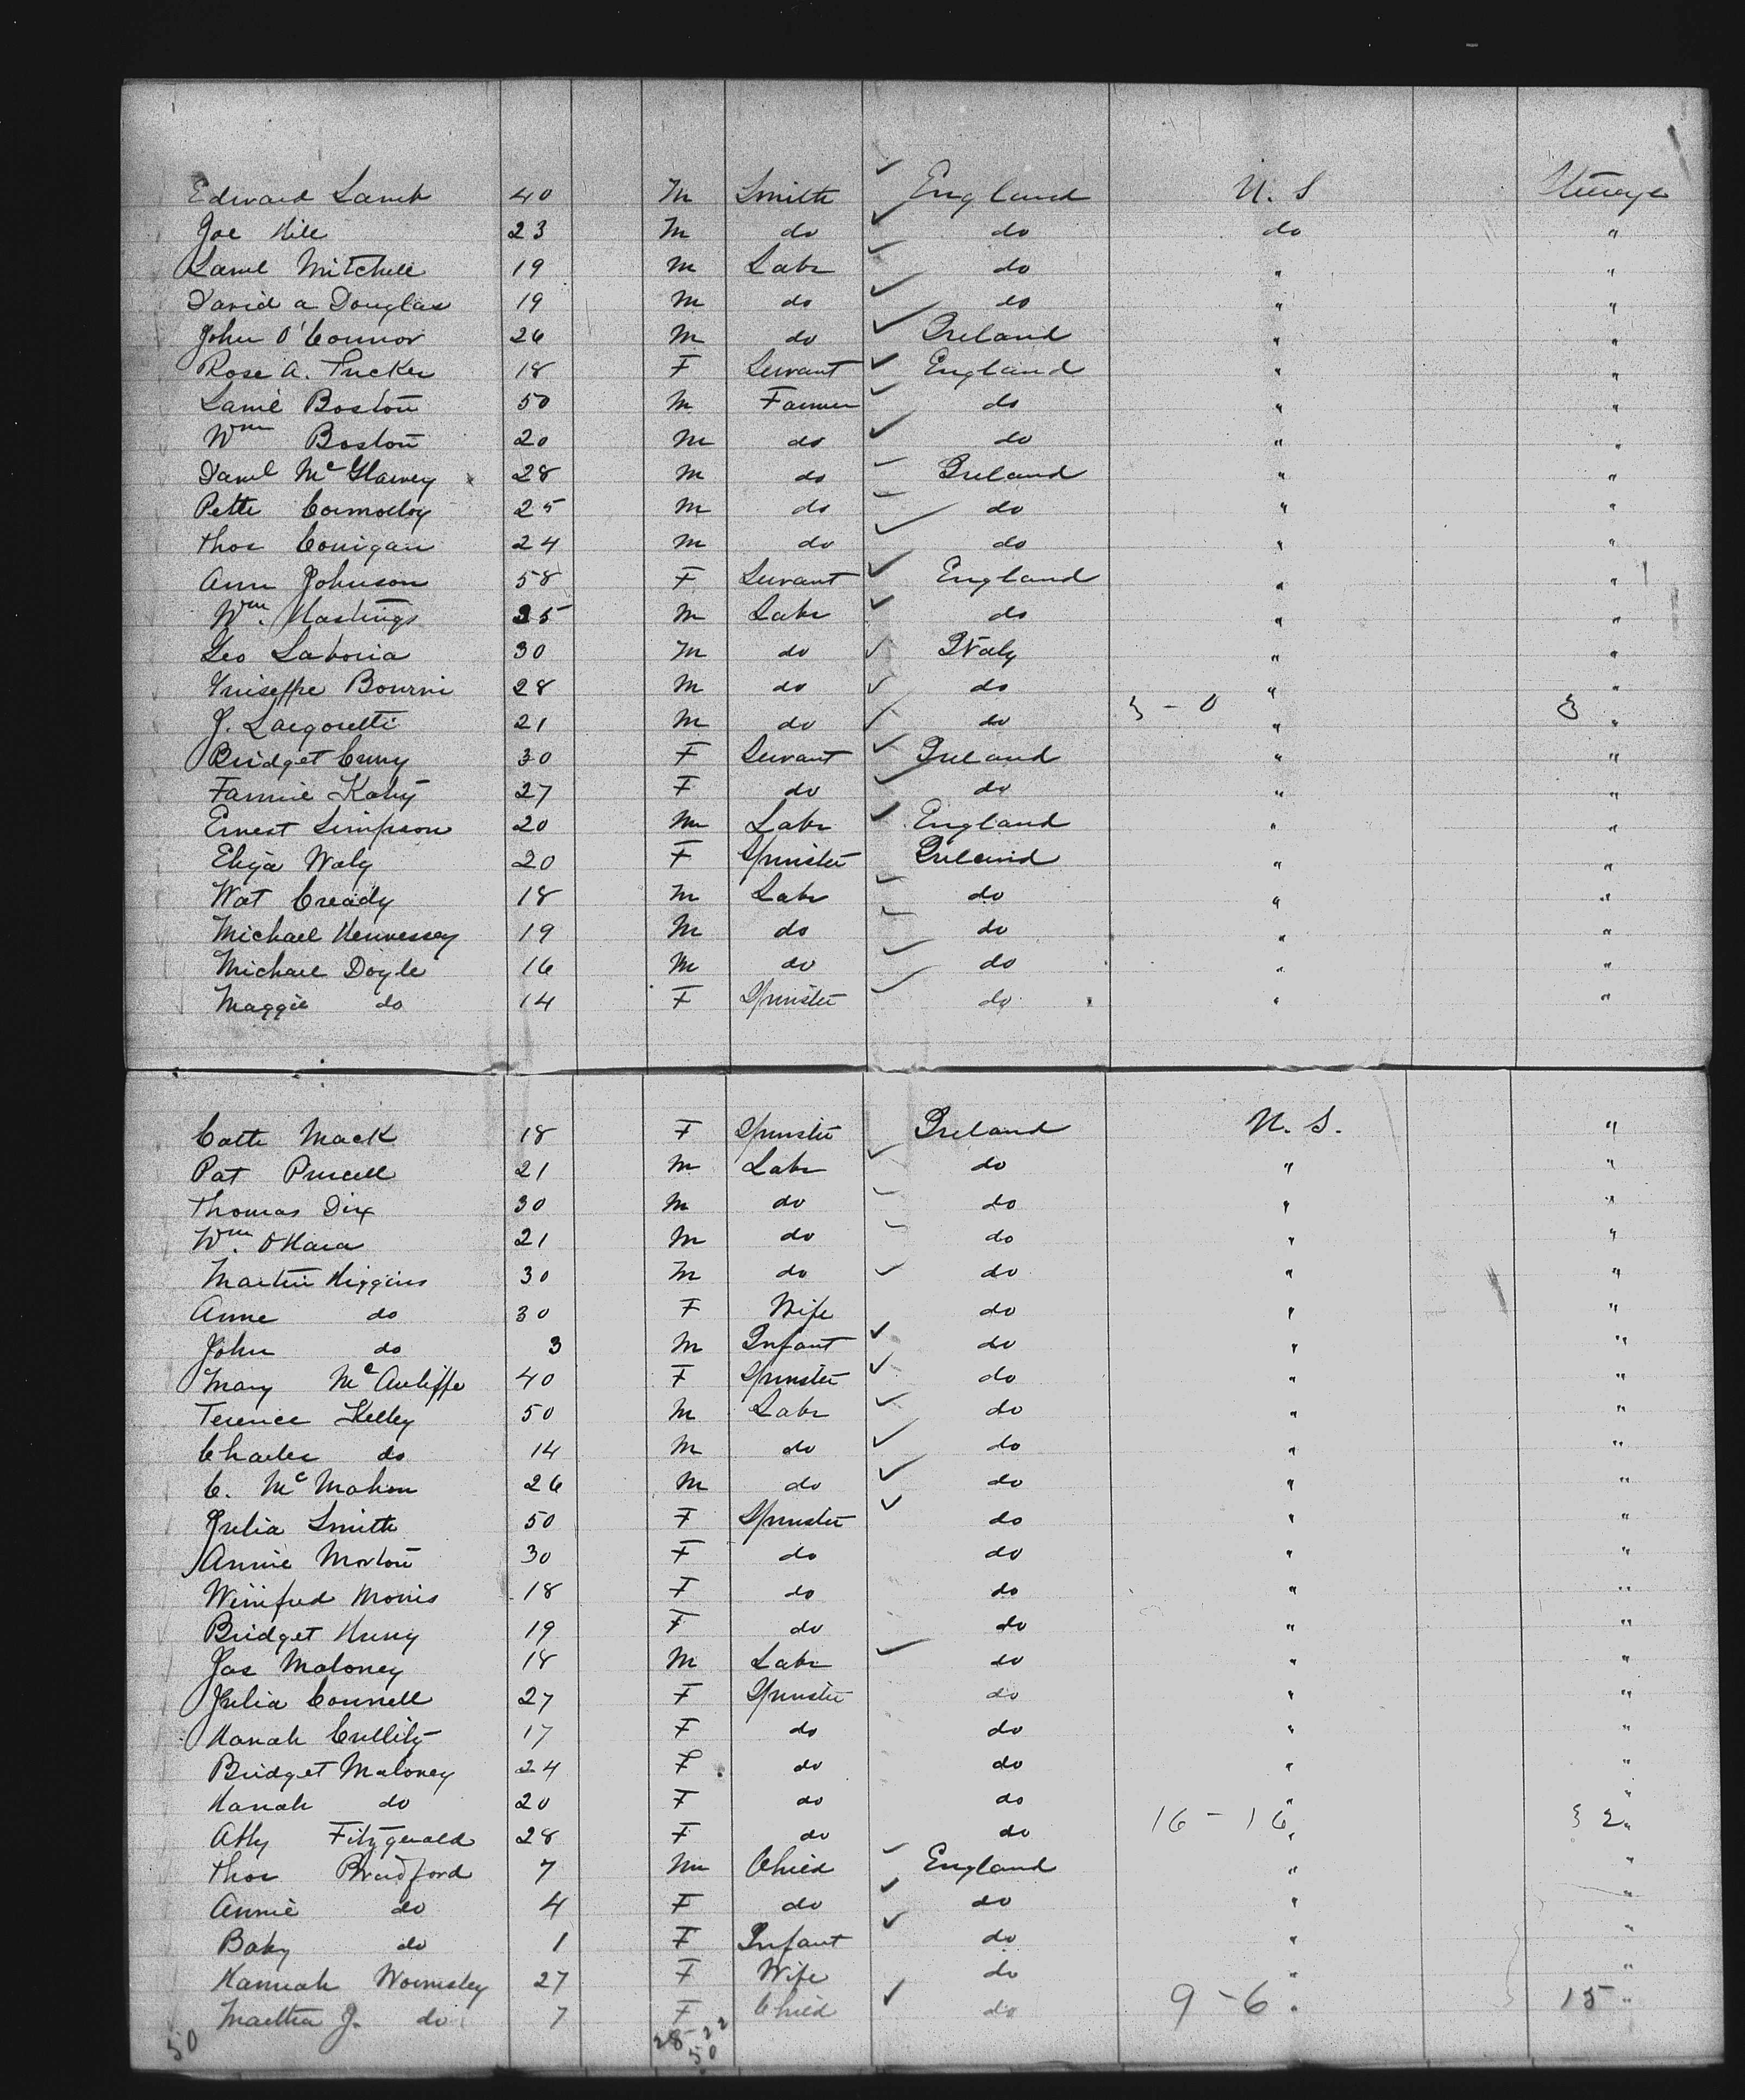 Edward Lamb 40 M Smith England U. S Steerage
Joe Hill 23 M do do do "
Saml Mitchell 19 M Labr do " "
David A Douglas 19 M do do " "
John O'Connor 26 M do Ireland " "
Rose A. Tucker 18 F Servant England " "
Saml Boston 50 M Farmer do " "
Wm Boston 20 M do do " "
Danl McGlaney 28 M do Ireland " "
25 M do do " "
Thos Conigan 24 M do do " "
Ann Johnson 58 F Servant England " "
Wm. Hastings 25 M Labr do " "
Geo Laboria 30 M do Italy " "
Guiseppe Bourni 28 M do do " "
3 - 0 3
J. 21 M do do " "
Bridget 30 F Servant Ireland " "
Fannie 27 F do do " "
Ernest Simpson 20 M Labr England " "
Eliza Waly 20 F Spinster Ireland " "
Wat Cready 18 M Labr do " "
Michael Hennessey 19 M do do " "
Michael Doyle 16 M do do " "
Maggie do 14 F Spinster do " "
Catte Mack 18 F Spinster Ireland U. S. "
Pat Purcell 21 M Labr do " "
Thomas Dix 30 M do do " "
Wm. OHara 21 M do do " "
Martin Higgins 30 M do do " "
Anne do 30 F Wife do " "
John do 3 M Infant do " "
Mary McAuliffe 40 F Spinster do " "
Terence Kelley 50 M Labr do " "
Charles do 14 M do do " "
C. McMahon 26 M do do " "
Julia Smith 50 F Spinster do " "
Annie Morton 30 F do do " "
Winifred Morris 18 F do do " "
Bridget 19 F do do " "
Jas Maloney 18 M Labr do " "
Julia Connell 27 F Spinster do " "
Hanah Cullity 17 F do do " "
Bridget Maloney 24 F do do " "
Hanah do 20 F do do " "
16 - 16 32
Fitzgerald 28 F do do " "
Thos Bradford 7 M Child England " "
Annie do 4 F do do " "
Baby do 1 F Infant do " "
Hannah Wormsley 27 F Wife do " "
Martha J. do 7 F Child do 9 - 6 " 15 "
50 28 22
50